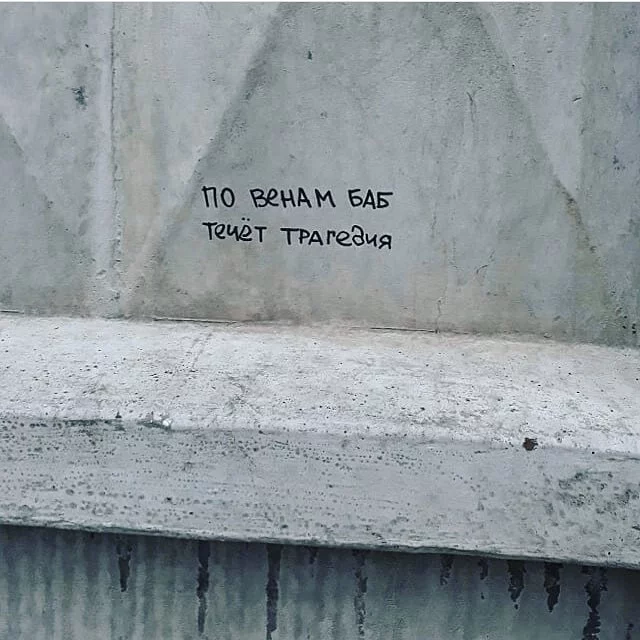 по венам баб
течёт трагедия